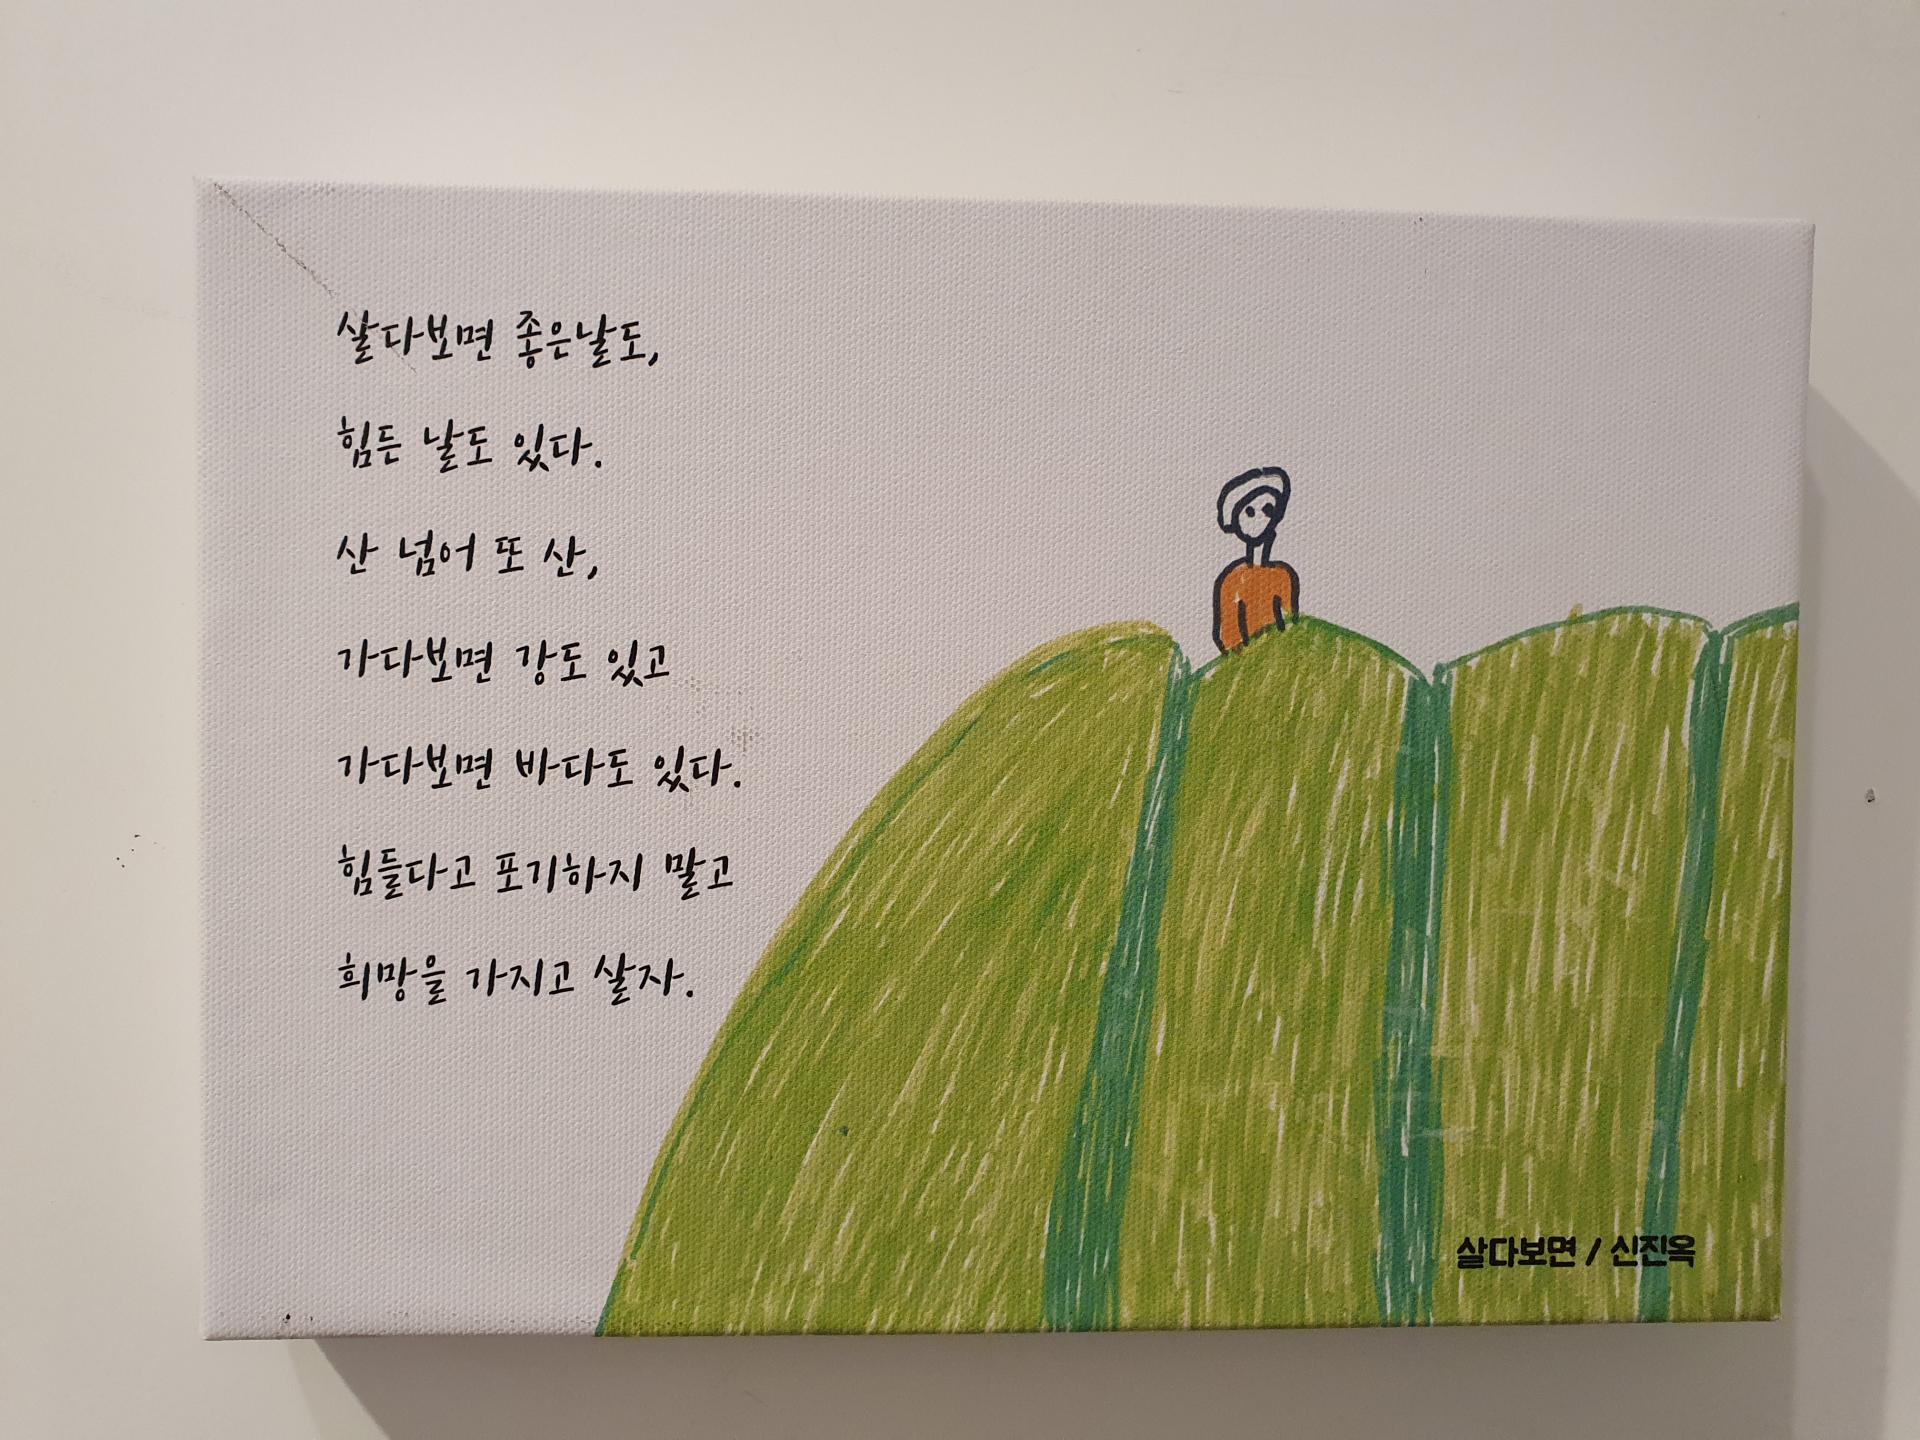 살다보면 좋은날도,
힘든 날도 있다.
산 넘어 또 산,
가다보면 강도 있고
가다보면 바다도 있다.
힘들다고 포기하지 말고
희망을 가지고 살자.
살다보면 / 신진옥